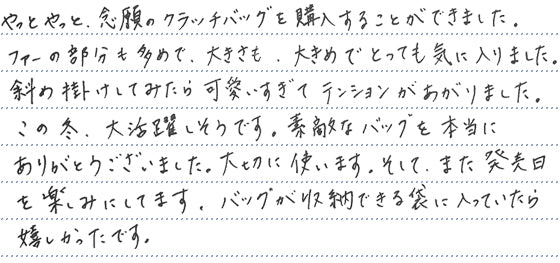 やっとやっと、念願のクラッチバッグを購入することができました。
ファーの部分も多めで、大きさも、大きめでとっても気に入りました。
斜め掛けしてみたら可愛いすぎてテンションがあがりました。
この冬、大活躍しそうです。素敵なバッグを本当に
ありがとうございました。大切に使います。そして、また発売日
を楽しみにしてます。バッグが収納できる袋に入っていたら
嬉しかったです。